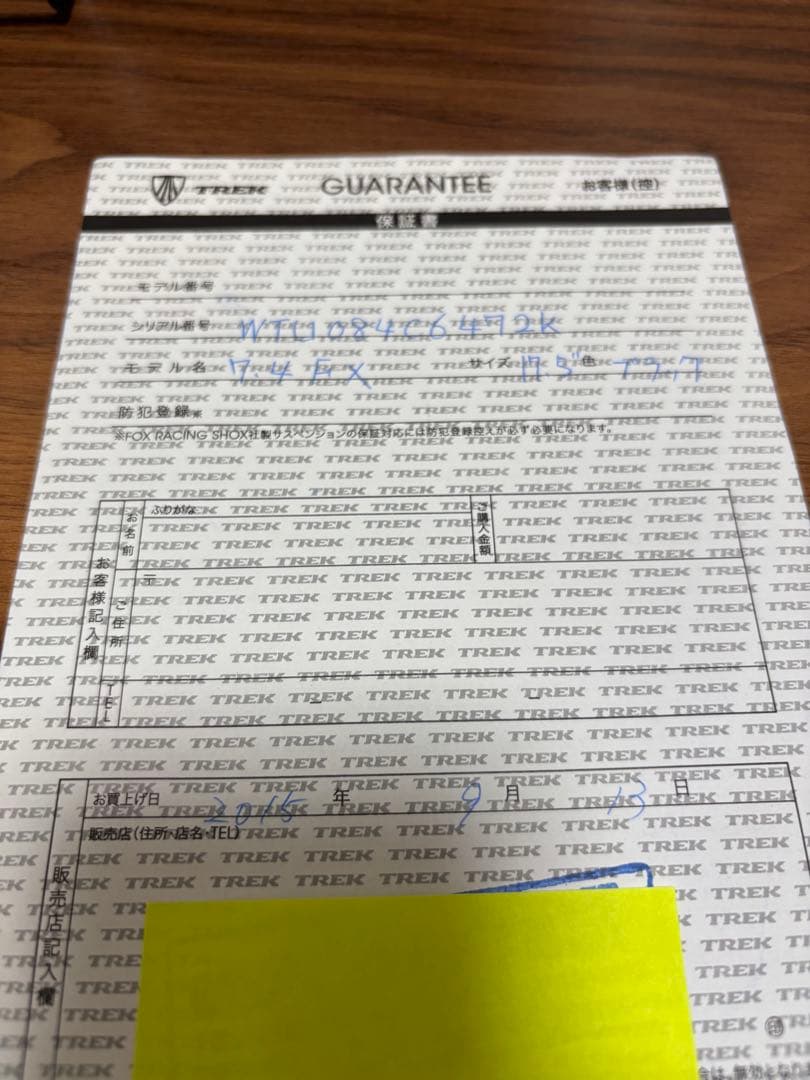 TREK GUARANTEE お客様(控)
保証書
モデル番号
シリアル番号 WTU084C6472K
モデル名 7.4 FX サイズ 17.5" 色 ブラック
防犯登録※
※FOX RACING SHOX社製サスペンションの保証対応には防犯登録控えが必ず必要になります。
お客様記入欄
お名前 ふりがな
ご購入金額
ご住所 〒
TEL
販売店記入欄
お買上げ日 2015 年 9 月 13 日
販売店(住所・店名・TEL)
印